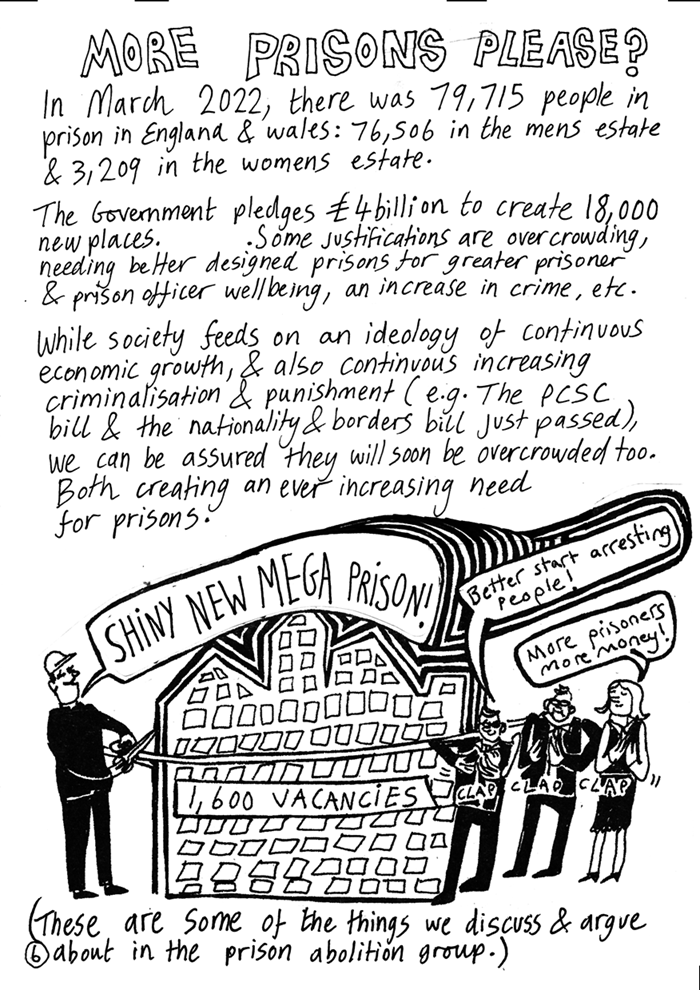 MORE PRISONS PLEASE?
In March 2022, there was 79,715 people in
prison in England & wales: 76,506 in the mens estate
& 3,209 in the womens estate.
The Government pledges £4 billion to create 18,000
new places. .Some justifications are overcrowding,
needing better designed prisons for greater prisoner
& prison officer wellbeing, an increase in crime, etc.
While society feeds on an ideology of continuous
economic growth, & also continuous increasing
criminalisation & punishment (e.g. The PCSC
bill & the nationality & borders bill just passed),
we can be assured they will soon be overcrowded too.
Both creating an ever increasing need
for prisons.
SHINY NEW MEGA PRISON!
Better start arresting
people!
More prisoners
more money!
1,600 VACANCIES
CLAP CLAP CLAP
(These are some of the things we discuss & argue
6 about in the prison abolition group.)